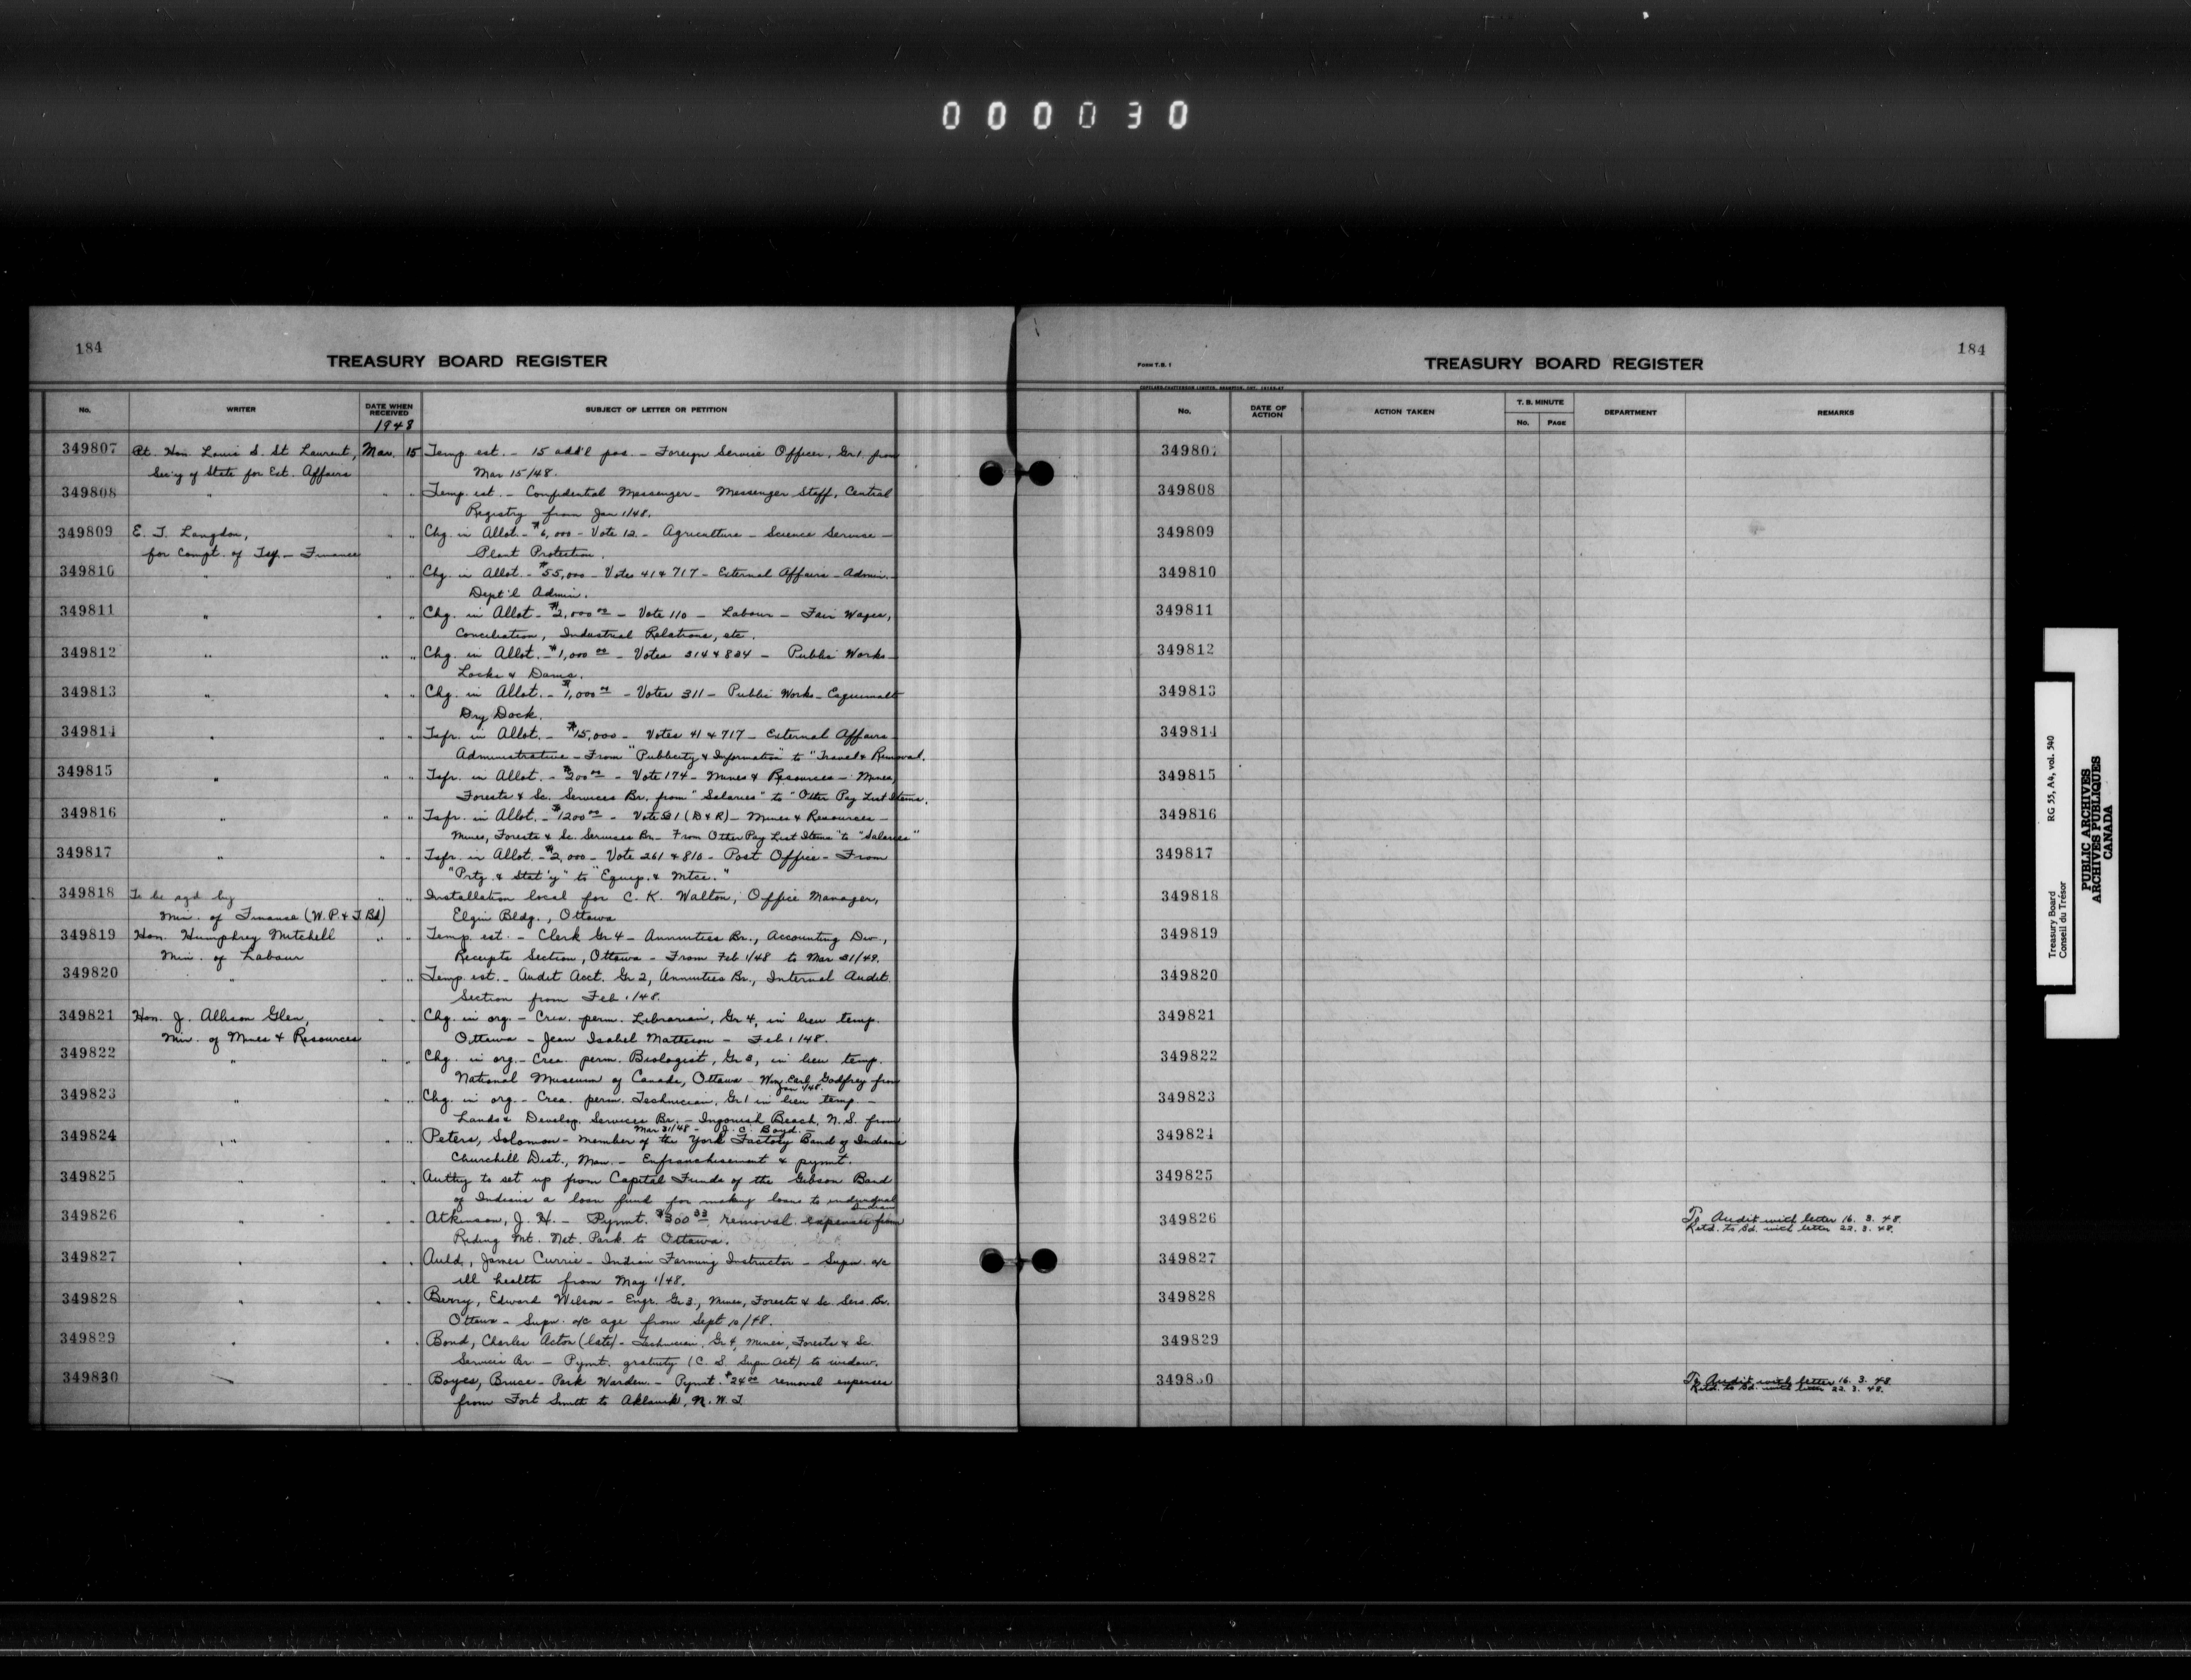 000030
184
TREASURY BOARD REGISTER
No. WRITER DATE WHEN RECEIVED SUBJECT OF LETTER OR PETITION
1948
349807 Rt. Hon. Louis S. St Laurent, Mar. 15 Temp. est. - 15 add'l pos. - Foreign Service Officer, Gr 1. from
Sec'y of State for Ext. Affairs Mar 15/48.
349808 " " " Temp. est. - Confidential Messenger - Messenger Staff, Central
Registry from Jan 1/48.
349809 E. T. Langdon, " " Chg. in Allot. - $6,000 - Vote 12 - Agriculture - Science Service -
for Compt. of Tsy - Finance Plant Protection.
349810 " " " Chg. in Allot. - $55,000 - Votes 41 & 717 - External Affairs - Admin. -
Dept'l Admin.
349811 " " " Chg. in Allot - $2,000 00 - Vote 110 - Labour - Fair Wages,
Conciliation, Industrial Relations, etc.
349812 " " " Chg. in Allot. - $1,000 00 - Votes 314 & 834 - Public Works -
Locks & Dams.
349813 " " " Chg. in Allot. - $1,000 00 - Votes 311 - Public Works - Esquimalt
Dry Dock.
349814 " " " Tsfr. in Allot. - $15,000 - Votes 41 & 717 - External Affairs -
Administrative - From "Publicity & Information" to "Travel & Removal.
349815 " " " Tsfr. in Allot. - $200 00 - Vote 174 - Mines & Resources - Mines,
Forests & Sc. Services Br. from "Salaries" to "Other Pay List Items.
349816 " " " Tsfr. in Allot. - $1200 00 - Vote 581 (D & R) - Mines & Resources -
Mines, Forests & Sc. Services Br. - From Other Pay List Items" to "Salaries"
349817 " " " Tsfr. in Allot. - $2,000 - Vote 261 & 810 - Post Office - From
"Prtg. & Stat'y" to "Equip. & Mtce."
349818 To be sgd by " " Installation local for C. K. Walton, Office Manager,
Min. of Finance (W.P. & T. Bd) Elgin Bldg., Ottawa
349819 Hon. Humphrey Mitchell " " Temp. est. - Clerk Gr 4 - Annuities Br., Accounting Div.,
Min. of Labour Receipts Section, Ottawa - From Feb 1/48 to Mar 31/49.
349820 " " " Temp. est. - Audit Acct. Gr 2, Annuities Br., Internal Audit
Section from Feb 1/48.
349821 Hon. J. Allison Glen, " " Chg. in org. - Crea. perm. Librarian, Gr 4, in lieu temp.
Min. of Mines & Resources Ottawa - Jean Isabel Matheson - Feb 1/48.
349822 " " " Chg. in org. - Crea. perm. Biologist, Gr 3, in lieu temp.
National Museum of Canada, Ottawa - Wm. Earl Godfrey from
Jan 1/48.
349823 " " " Chg. in org. - Crea. perm. Technician, Gr 1 in lieu temp. -
Lands & Develop. Services Br. - Ingonish Beach, N.S. from
Mar 31/48 - J. C. Boyd. -
349824 " " " Peters, Solomon - member of the York Factory Band of Indians
Churchill Dist., Man. - Enfranchisement & pymt.
349825 " " " Auth'y to set up from Capital Funds of the Gibson Band
of Indians a loan fund for making loans to individual
Indians
349826 " " " Atkinson, J. H. - Pymt. $300 33 removal expenses from
Riding Mt. Nat. Park to Ottawa.
349827 " " " Auld, James Currie - Indian Farming Instructor - Supn. a/c
ill health from May 1/48.
349828 " " " Berry, Edward Wilson - Engr. Gr 3, Mines, Forests & Sc. Serv. Br.
Ottawa - Supn. a/c age from Sept 10/48.
349829 " " " Bond, Charles Acton (late) - Technician, Gr 4, Mines, Forests & Sc.
Services Br. - Pymt. gratuity (C. S. Supn Act) to widow.
349830 " " " Boyes, Bruce - Park Warden - Pymt. $24 00 removal expenses
from Fort Smith to Aklavik, N.W.T.
184
FORM T.B. 1
TREASURY BOARD REGISTER
No. DATE OF ACTION ACTION TAKEN T. B. MINUTE No. PAGE DEPARTMENT REMARKS
349807
349808
349809
349810
349811
349812
349813
349814
349815
349816
349817
349818
349819
349820
349821
349822
349823
349824
349825
349826 To Audit with letter 16. 3. 48.
Retd. to Bd. with letter 22. 3. 48.
349827
349828
349829
349830 To Audit with letter 16. 3. 48
Retd. to Bd. with letter 22. 3. 48.
Treasury Board RG 55, A4, vol. 540
Conseil du Trésor
PUBLIC ARCHIVES
ARCHIVES PUBLIQUES
CANADA